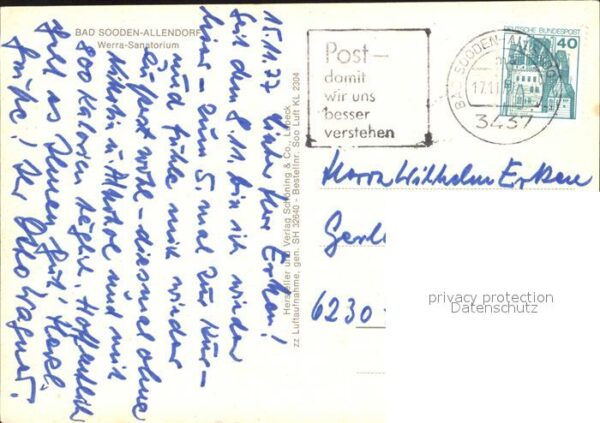 BAD SOODEN-ALLENDORF
Werra-Sanatorium
15.11.77 Lieber Herr Erken!
Seit dem 8.11. bin ich wieder
hier - zum 5. mal zur Kur -
und fühle mich wieder
äußerst wohl - diesmal ohne
Nikotin u. Alkohol und mit
800 Kalorien täglich. Hoffentlich
geht es Ihnen gut! Herzl.
Grüße! Ihr Otto Wagner.
Hersteller und Verlag Schöning & Co., Lübeck
zz Luftaufnahme, gen. SH 32640 - Bestellnr. Soo Luft KL 2304
Post -
damit
wir uns
besser
verstehen
BAD SOODEN-ALLENDORF
17.11.
3437
DEUTSCHE BUNDESPOST
40
Herrn Wilhelm Erken
6230
privacy protection
Datenschutz